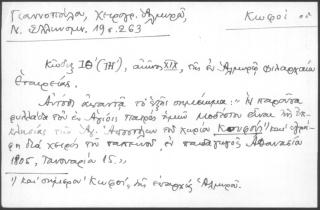 Γιαννοπούλου, Χειρογρ. Ἁλμυροῦ, Κωφοί
Ν. Ἑλληνομν. 19 σ. 263
Κῶδιξ ΙΘ' (ΤΗ'), αἰῶνος XIX, τῆς ἐν Ἁλμυρῷ φιλαρχαίου
Ἑταιρείας.
ἀναντα τὸ ἑξῆς σημείωμα: "Ἡ παροῦσα
φυλλάδα τοῦ ἐν ἁγίοις πατρὸς ἡμῶν Μοδέστου εἶναι τῆς ἐκ-
κλησίας τῶν Ἁγ. Ἀποστόλων τοῦ χωρίου Κουφοῦς¹⁾ καὶ ἐγρά-
φη διὰ χειρὸς τοῦ ταπεινοῦ, ἐν Ἀθανασίου
1805, Ἰανουαρίου 15."
¹⁾ καὶ σήμερον Κωφοί, τῆς ἐπαρχίας Ἁλμυροῦ.